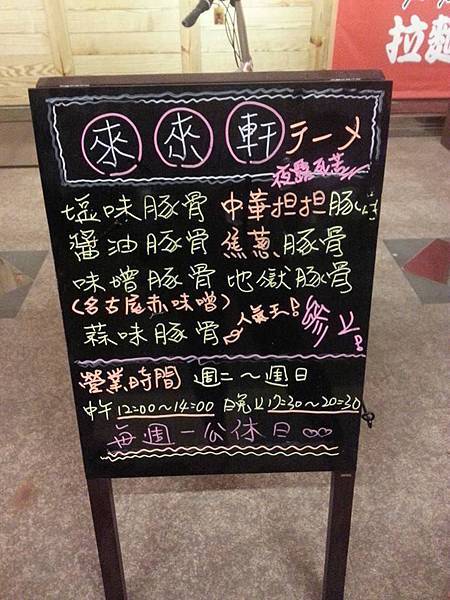 拉麵
來來軒 ラーメ
塩味豚骨 中華担担豚骨
醬油豚骨 焦蔥豚骨
味増豚骨 地獄豚骨
(名古屋赤味噌)
蒜味豚骨 人氣王!
參上!
營業時間 週二～週日
中午12:00～14:00 晚上17:30～20:30
每週一公休日